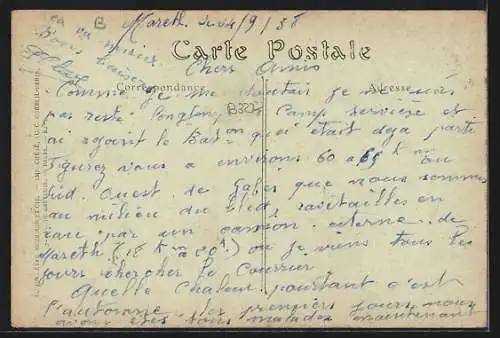 Mareth le 24/9/38
B
ça va
mieux
Bons baisers
Carte Postale
Chers Amis
Correspondance
Adresse
B327
Comme je me doutais je ne suis
pas resté longtemps Camp servière et
ai rejoint le Bat^on qui était déja parti
figurez vous a environs 60 a 65 Km au
Sud. Ouest de Gabès que nous sommes
au milieu du Bled, ravitailles en
eau par un camion citerne de
Mareth (18 Km) ou je viens tous les
jours chercher le Courrier
Quelle Chaleur pourtant c'est
l'automne. les premiers jours nous
avons étés tous malades maintenant